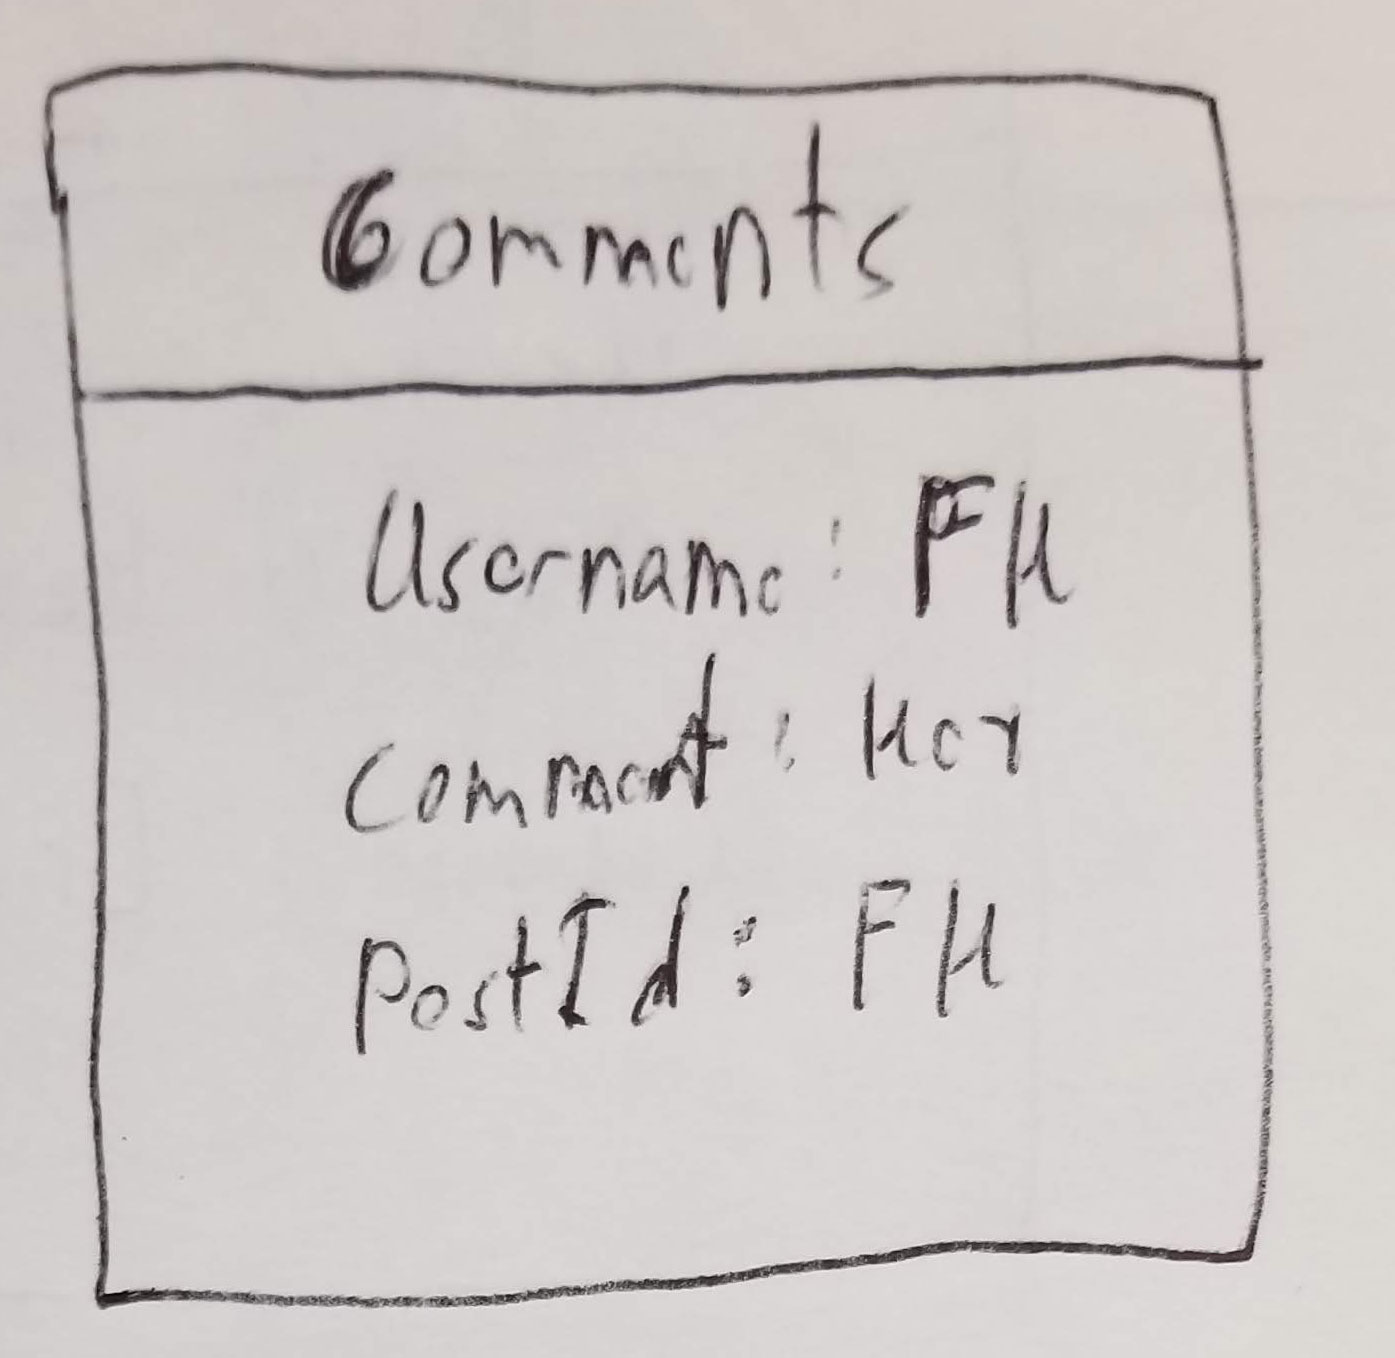 Comments
Username: FK
Comment: Key
PostId: FK